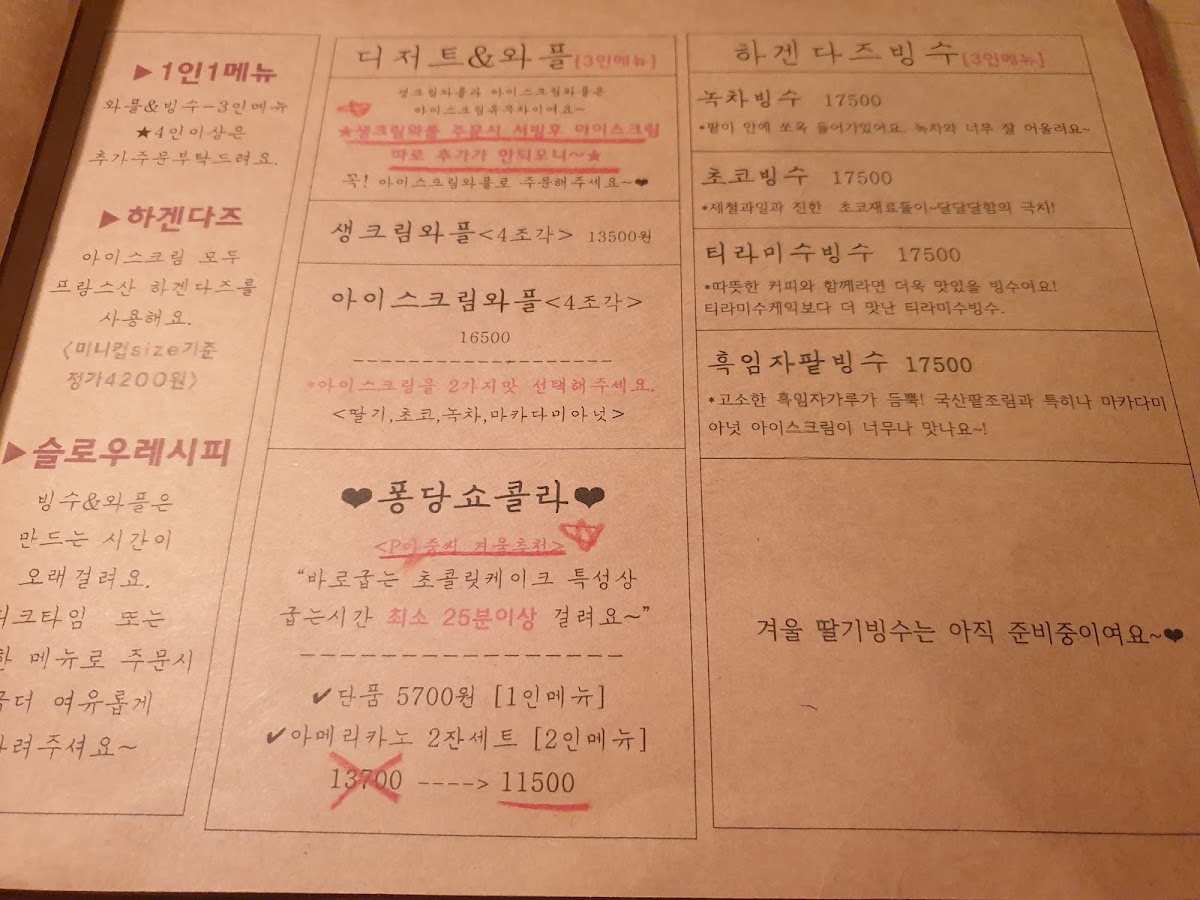 ▶1인1메뉴
와플&빙수-3인메뉴
★4인이상은
추가주문부탁드려요.
▶하겐다즈
아이스크림 모두
프랑스산 하겐다즈를
사용해요.
<미니컵size기준
정가4200원>
▶슬로우레시피
빙수&와플은
만드는 시간이
오래걸려요.
티크타임 또는
한 메뉴로 주문시
여유롭게
려주셔요~
디저트&와플[3인메뉴]
생크림와플과 아이스크림와플은
아이스크림유무차이여요~
★생크림와플 주문시 서빙후 아이스크림
따로 추가가 안되오니~★
꼭! 아이스크림와플로 주문해주세요~❤
생크림와플<4조각> 13500원
아이스크림와플<4조각>
16500
*아이스크림을 2가지맛 선택해주세요.
<딸기,초코,녹차,마카다미아넛>
❤퐁당쇼콜라❤
<P아줌씨 겨울추천>
“바로굽는 초콜릿케이크 특성상
굽는시간 최소 25분이상 걸려요~”
✔단품 5700원 [1인메뉴]
✔아메리카노 2잔세트 [2인메뉴]
13700 ----> 11500
하겐다즈빙수[3인메뉴]
녹차빙수 17500
*팥이 안에 쏘옥 들어가있어요. 녹차와 너무 잘 어울려요~
초코빙수 17500
*제철과일과 진한 초코재료들이~달달달함의 극치!
티라미수빙수 17500
*따뜻한 커피와 함께라면 더욱 맛있을 빙수여요!
티라미수케익보다 더 맛난 티라미수빙수.
흑임자팥빙수 17500
*고소한 흑임자가루가 듬뿍! 국산팥조림과 특히나 마카다미
아넛 아이스크림이 너무나 맛나요~!
겨울 딸기빙수는 아직 준비중이여요~❤